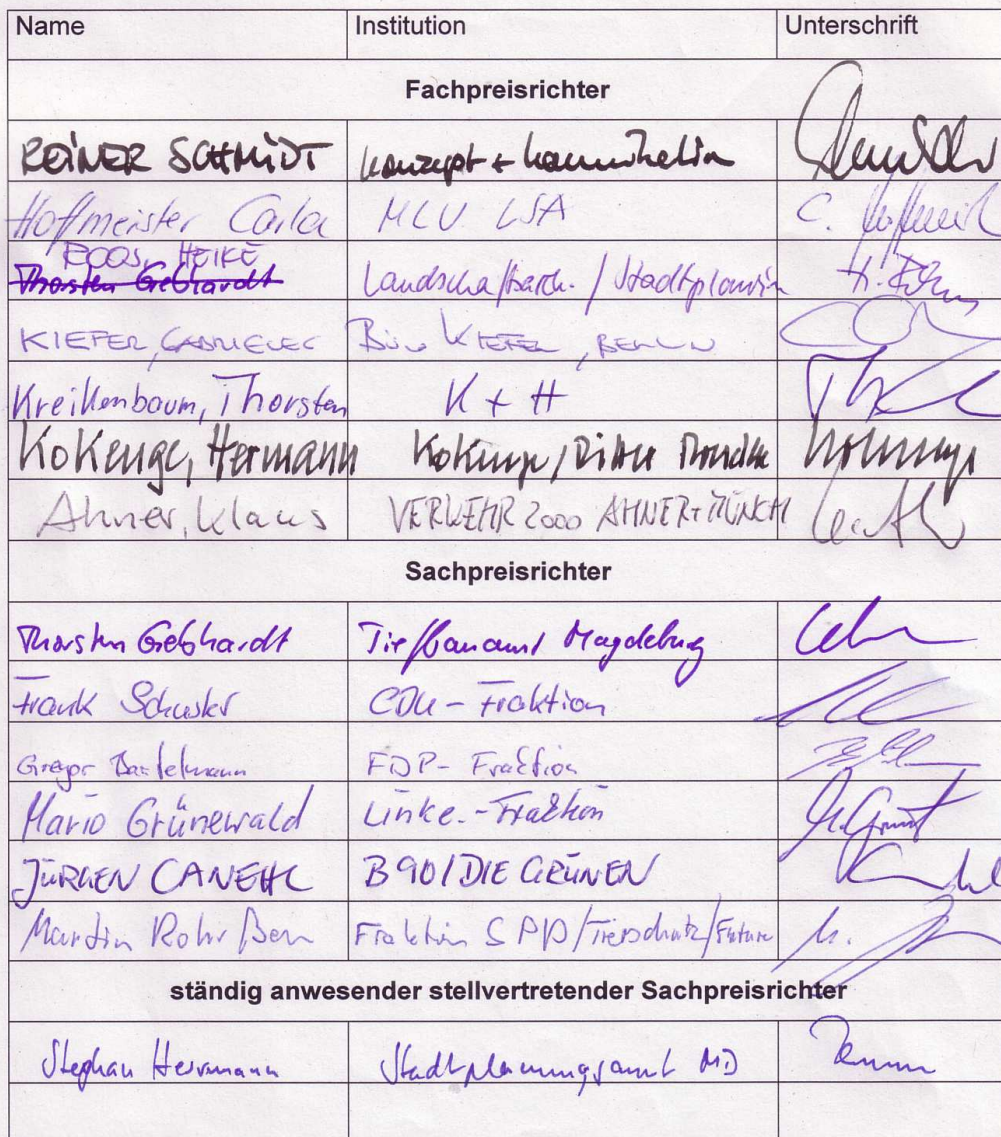 Name Institution Unterschrift
Fachpreisrichter
REINER SCHMIDT konzept + kommunikation
Hofmeister Carla MLV LSA C. Hofmeist
ROOS, HEIKE
Thorsten Gebhardt Landschaftsarch. / Stadtplanerin H. Roos
KIEFER, GABRIELE Büro KIEFER, BERLIN
Kreikenbaum, Thorsten K + H
Kokenge, Hermann Kokenge / Ritter Kokenge
Ahner, Klaus VERKEHR 2000 AHNER + MÜNCH
Sachpreisrichter
Thorsten Gebhardt Tiefbauamt Magdeburg
Frank Schuster CDU - Fraktion
Gregor Bartelmann FDP - Fraktion
Mario Grünewald Linke.-Fraktion
JÜRGEN CANEHL B90/DIE GRÜNEN
Martin Rohrßen Fraktion SPD/Tierschutz/Future
ständig anwesender stellvertretender Sachpreisrichter
Stephan Herrmann Stadtplanungsamt MD